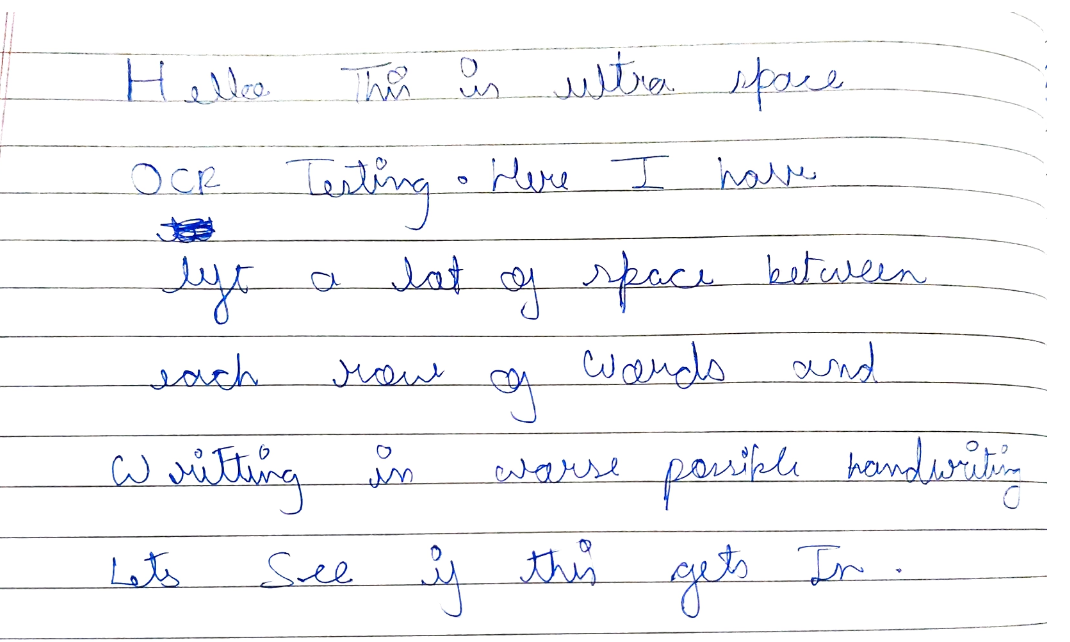 Hello This is ultra space
OCR Testing. Here I have
left a lot of space between
each row of words and
Writting in worse possible handwriting
Lets See if this gets In.